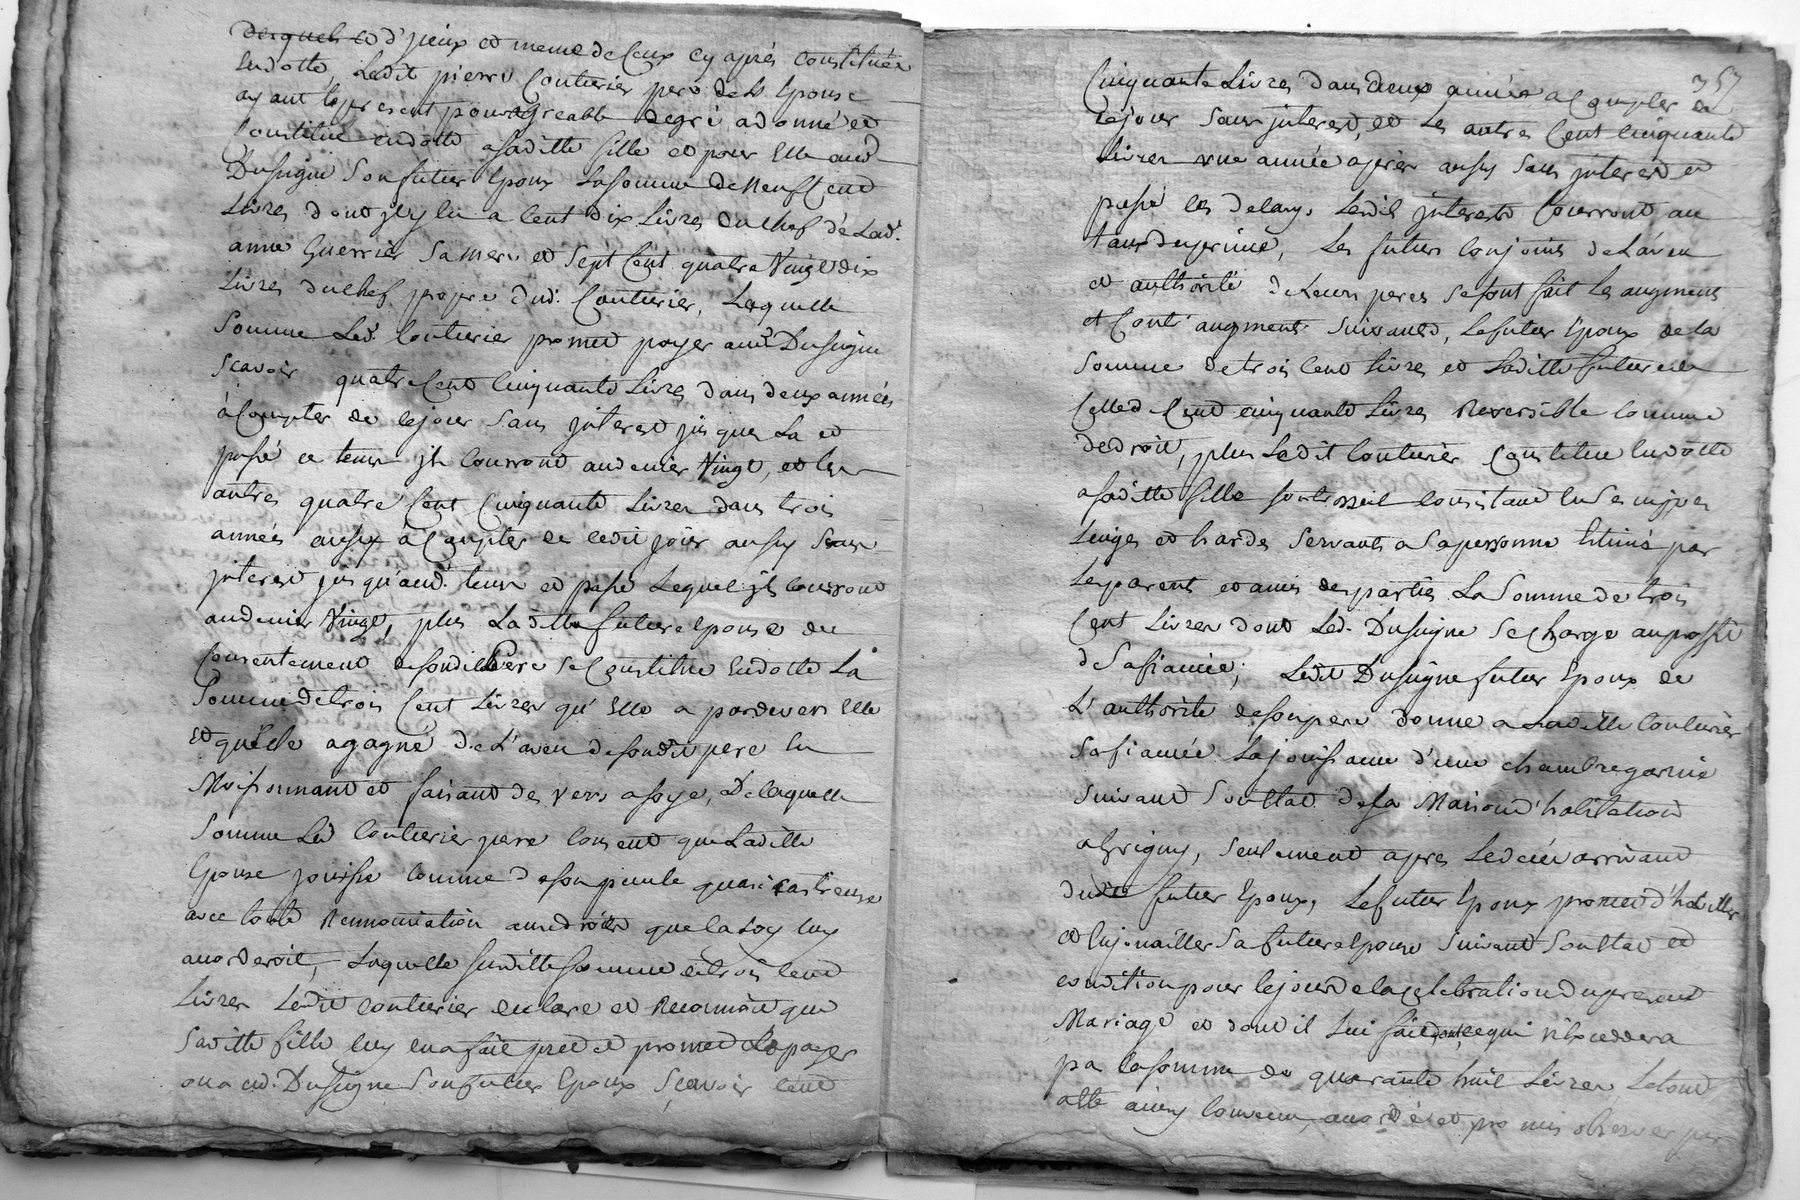 desquels et d'yceux et meme de ceux cy après constitués
En dotte, Ledit pierre Couturier pere de lad. Epouse
ayant le present pour agreable degré a donné et
Constitué en dotte a saditte fille et pour Elle aud.
Dusuigne Son futur Epoux La somme de Neuf Cent
Livres dont jl y en a Cent dix Livres du Chef de Lad.
anne Guerrier Sa mere et Sept Cent quatre Vingt dix
Livres du chef propre dud. Couturier, Laquelle
Somme Led. Couturier promet payer aud. Dusuigne
Scavoir quatre Cent Cinquante Livres dans deux années
à Compter de ce jour Sans jnterest jusques La et
passé ce tems jls Courront au denier Vingt, et les
autres quatre Cent Cinquante Livres dans trois
années aussy à Compter de cedit jour aussy Sans
jnterest jusqu'aud. tems et passé Lequel jls Courront
au denier Vingt, plus Laditte future epouse du
Consentement de sondit Pere Se Constitue En dotte La
Somme de trois Cent Livres qu'Elle a pardevers Elle
et qu'Elle a gagné de L'aveu de sondit pere En
Moissonnant et faisant des vers a soye, De laquelle
Somme Led. Couturier pere Consent que Laditte
Epouse jouisse Comme de son pecule quasi castrense
avec toute Rennonciation aux droits que la Loy luy
accorderoit, Laquelle susditte somme de trois Cent
Livres Ledit Couturier declare et Reconnoit que
Saditte fille luy en a fait pret et promet de payer
aud. Dusuigne Son futur Epoux Scavoir Cent
357
Cinquante Livres dans deux années a Compter de
ce jour Sans jnterest, et Les autres Cent Cinquante
Livres une année après aussy Sans jnterest et
passé les delays Lesdits jnterests Courront au
taux du prince, Les futurs Conjoints de L'aveu
et authorité de Leurs peres Se sont fait Les augments
et Contr'augments Suivants, Le futur Epoux de la
Somme de trois Cent Livres et Laditte future de
Celle de Cent cinquante Livres Reversible Comme
de droit, plus Ledit Couturier Constitue En dotte
a saditte fille Son trossel Consistant En Ses nippes
Linges et hardes Servants a Sa personne Estimés par
Les parents et amis des parties La Somme de trois
Cent Livres dont Led. Dusuigne Se charge au proffit
de Sa fiancée; Ledit Dusuigne futur Epoux de
L'authorité de son pere donne a Laditte Couturier
Sa fiancée La jouissance d'une chambre garnie
Suivant Son Etat de Sa Maison d'habitation
a Grigny, Seulement apres Le décés arrivant
dudit futur Epoux, Le futur Epoux promet d'habiller
et Enjouailler Sa future Epouse Suivant Son Etat et
condition pour Le jour de la celebration du present
Mariage et dont il Lui fait don, ce qui n'excedera
pas la somme de quarante huit Livres, Le tout
atté ainsy Convenu, accordé et promis observer par